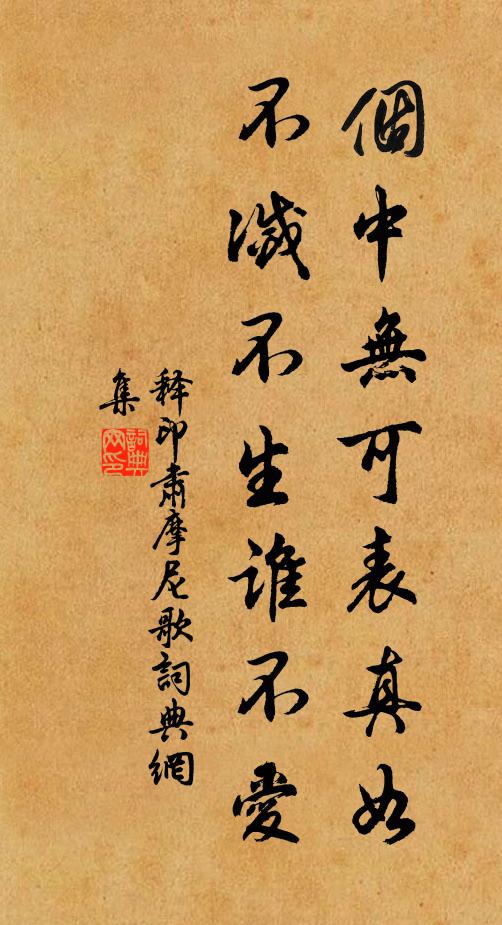 個中無可表真如
不滅不生誰不愛
释印肅摩尼歌詞典網
集
詞典
网印